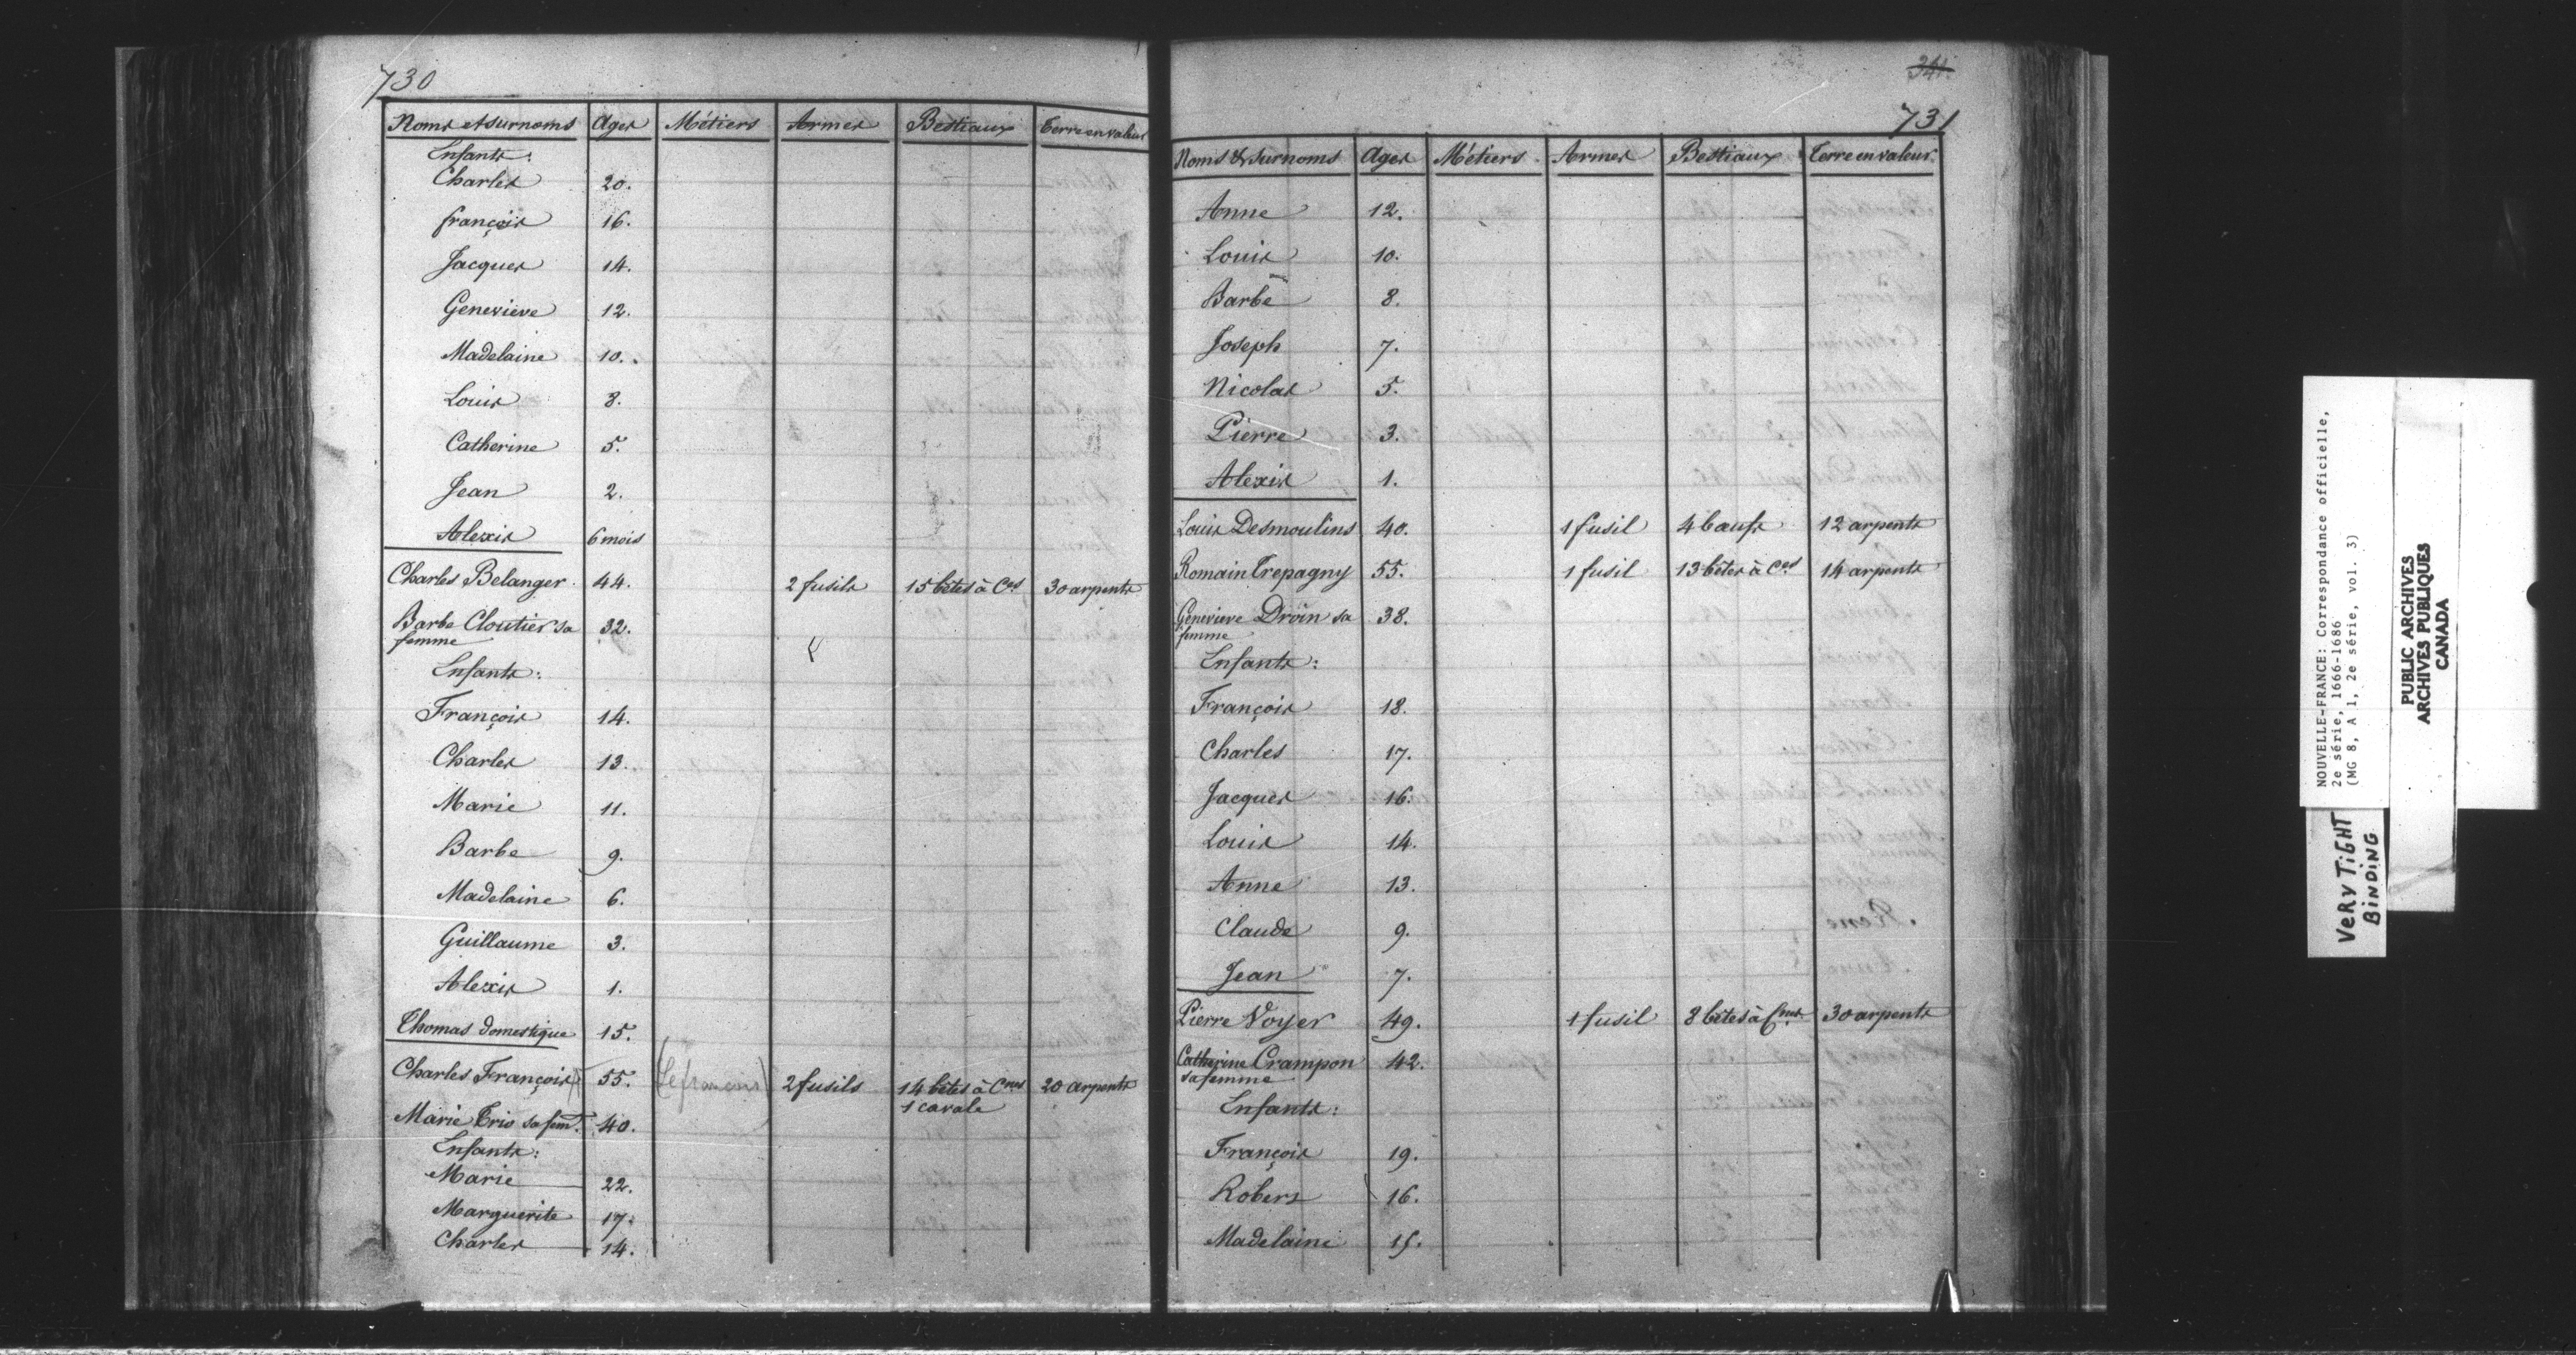 730
Noms et surnoms Ages Métiers Armes Bestiaux Terre en valeur
Enfants:
Charles 20.
françois 16.
Jacques 14.
Genevieve 12.
Madelaine 10.
Louis 8.
Catherine 5.
Jean 2.
Alexis 6 mois
Charles Belanger 44. 2 fusils 15 bêtes à Ces 30 arpents
Barbe Cloutier sa 32.
femme
Enfants:
François 14.
Charles 13.
Marie 11.
Barbe 9.
Madelaine 6.
Guillaume 3.
Alexis 1.
Thomas domestique 15.
Charles François 55. (Lefrançois) 2 fusils 14 bêtes à Cnes 20 arpents
1 cavale
Marie Trio sa fem. 40.
Enfants:
Marie 22.
Marguerite 17.
Charles 14.
341.
731
Noms & surnoms Ages Métiers Armes Bestiaux Terre en valeur.
Anne 12.
Louis 10.
Barbe 8.
Joseph 7.
Nicolas 5.
Pierre 3.
Alexis 1.
Louis Desmoulins 40. 1 fusil 4 bœufs 12 arpents
Romain Trepagny 55. 1 fusil 13 bêtes à Ces 14 arpents
Genevieve Droin sa 38.
femme
Enfants:
François 18.
Charles 17.
Jacques 16.
Louis 14.
Anne 13.
Claude 9.
Jean 7.
Pierre Voyer 49. 1 fusil 8 bêtes à Cnes 30 arpents
Catherine Crampon 42.
sa femme
Enfants:
François 19.
Robers 16.
Madelaine 15.
NOUVELLE-FRANCE: Correspondance officielle,
2e série, 1666-1686
(MG 8, A 1, 2e série, vol. 3)
VERY TIGHT
BINDING
PUBLIC ARCHIVES
ARCHIVES PUBLIQUES
CANADA